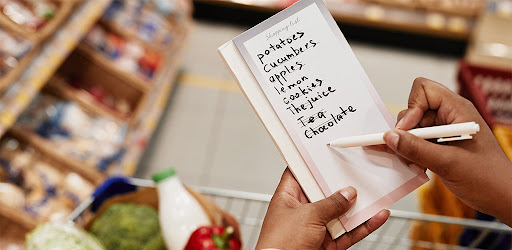 Shopping list
potatoes
Cucumbers
apples
lemon
cookies
The juice
Tea
Chocolate